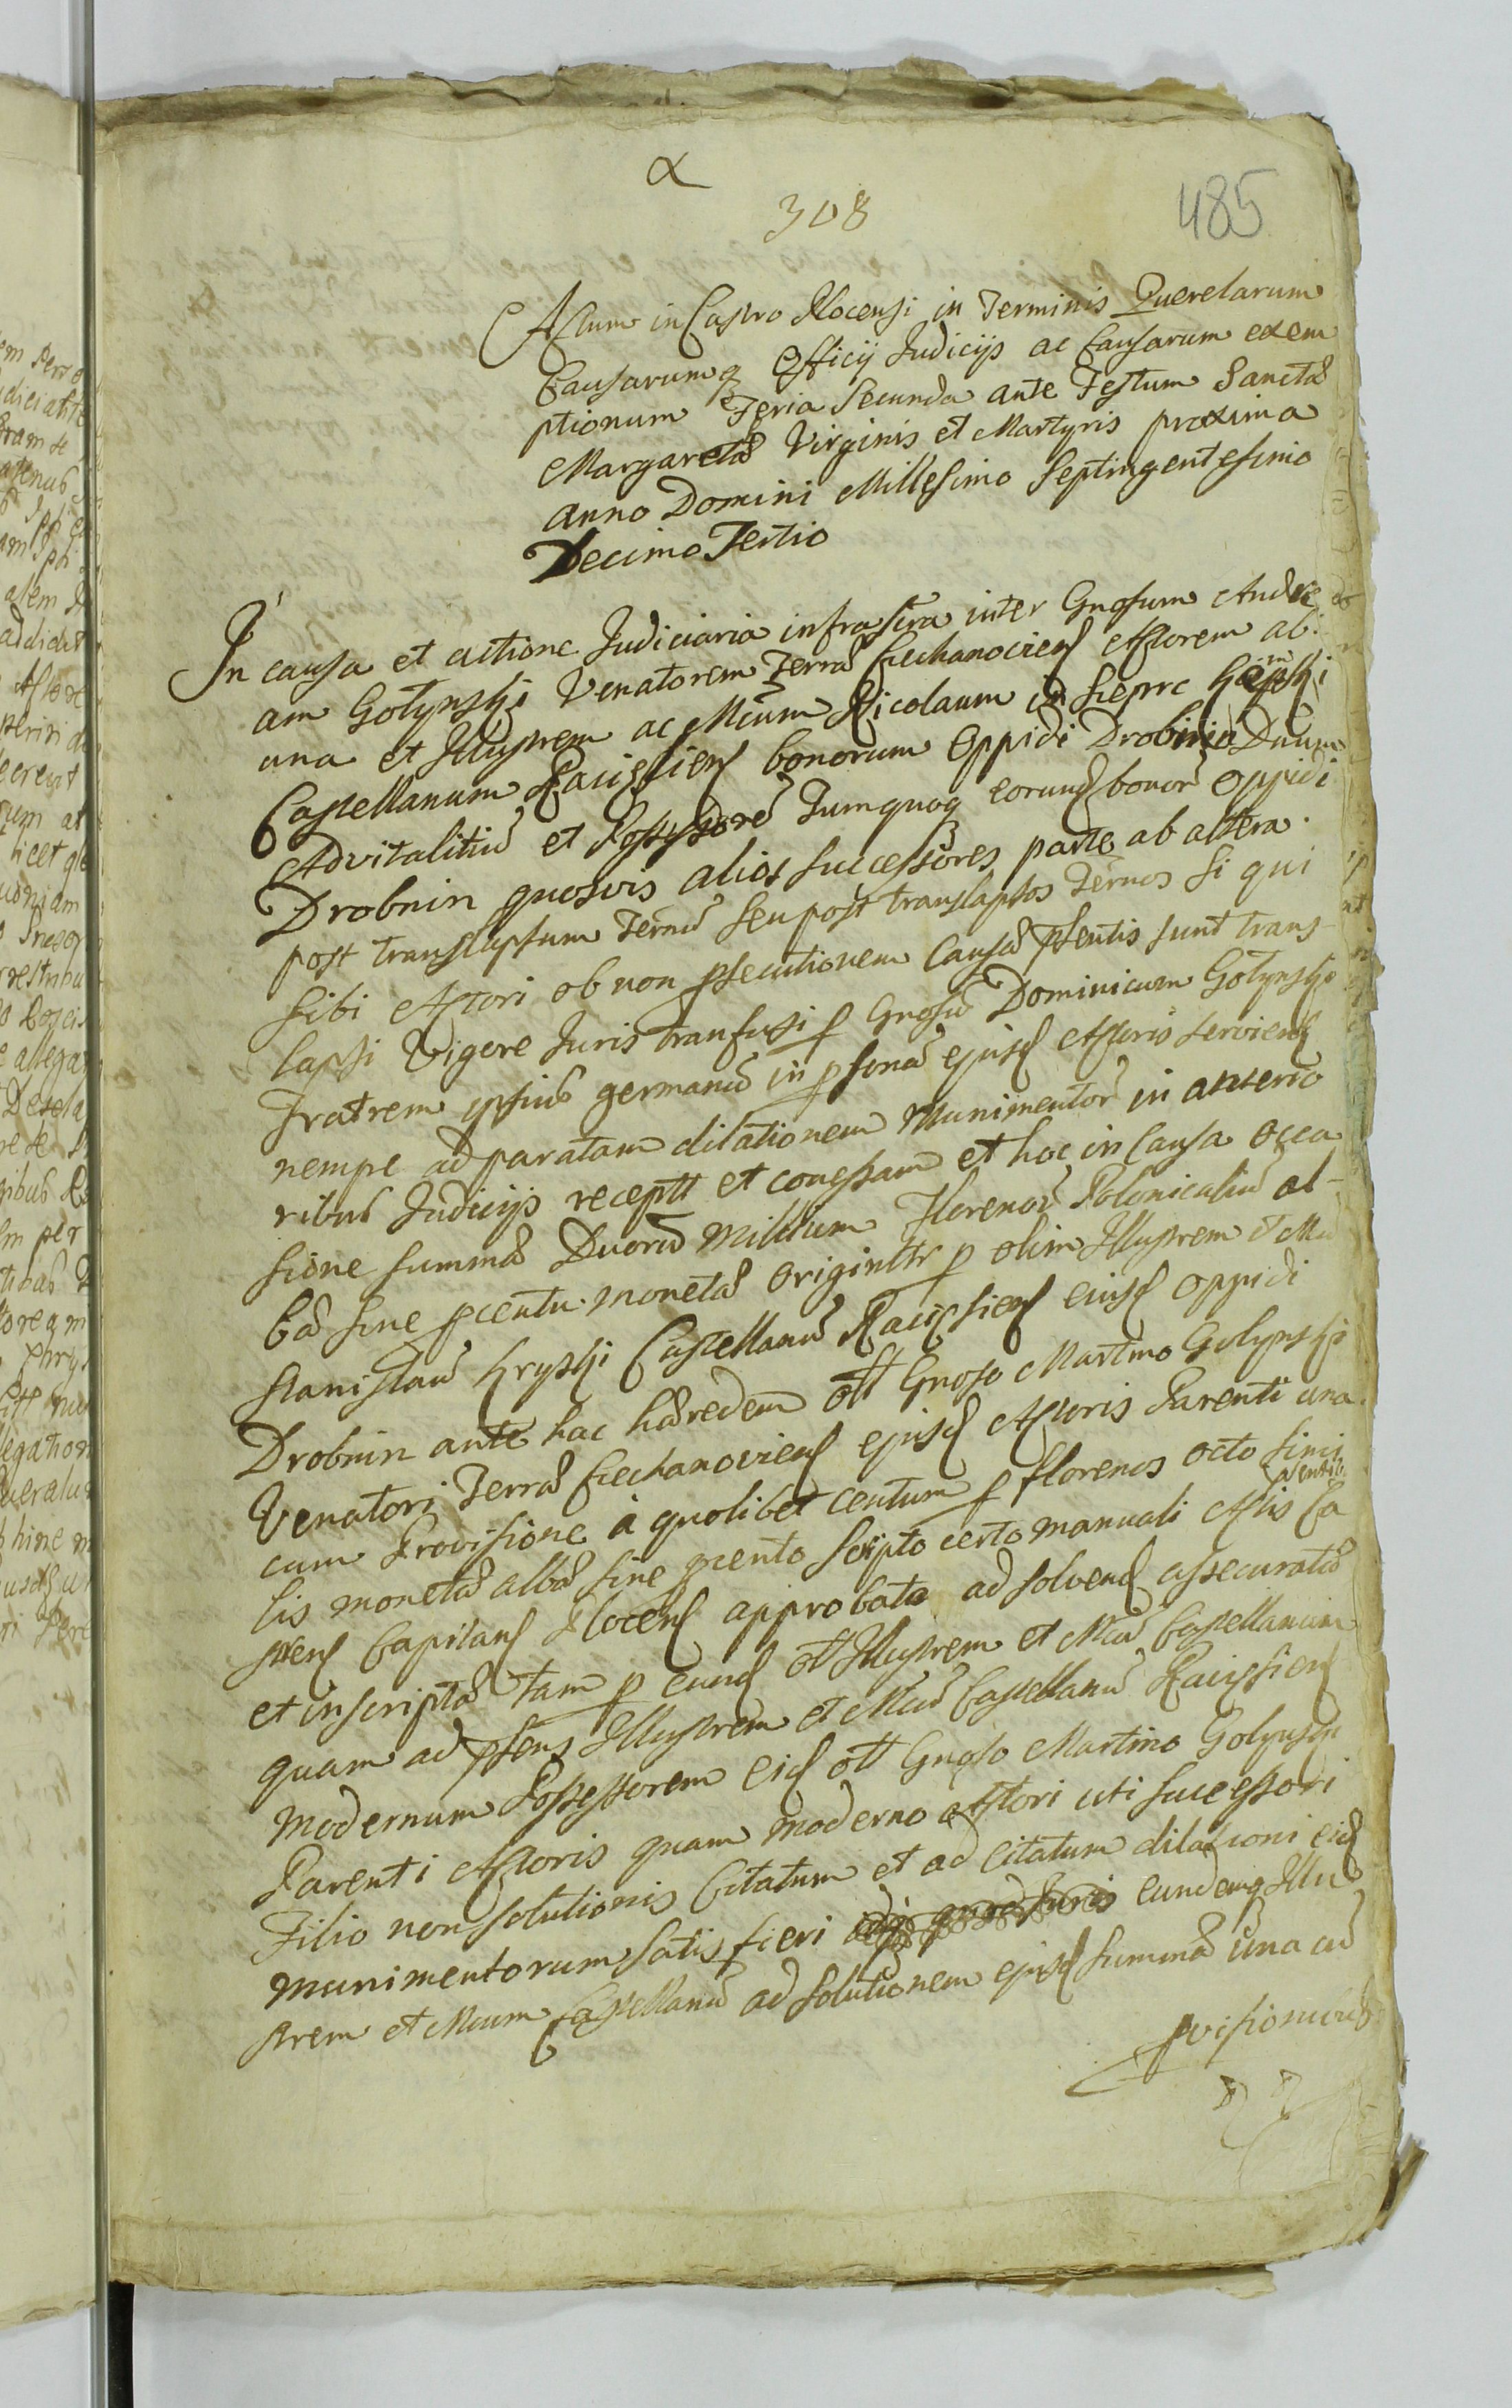 α
308
485
Actum in Castro Plocensi in Terminis Querelarum
Causarumq Officij Judicijs ac Causarum exem
ptionum Feria Secunda ante Festum Sanctæ
Margaretæ Virginis et Martyris proxima
anno Domini Millesimo Septingentesimo
Decimo Tertio
In causa et actione Judiciaria infrascra inter Gnosum Andre
am Gołynski Venatorem Terræ Ciechanoviens Actorem ab
una et Illustrem ac Mcum Nicolaum in Sieprc
Castellanum Raciążiens bonorum Oppidi Drobnin
Advitalitiu et Possessore Tumquoq eorund bonor Oppidi
Drobnin quosvis alios successores parte ab altera
post translapsum Termu seu post translaptos Termos si qui
sibi Actori ob non psecutionem Causæ psentis sunt trans-
lapsi Vigore Juris tranfusi p Gnosu Dominicum Gołynski
Fratrem ipsius germanu in psona ejusd Actoris serviens
nempe ad paratam dilationem Munimentor in anterio
ribus Judicijs receptt et concessam et hoc in Causa occa
sione summæ Duoru Millium Florenor Polonicaliu al-
bæ sine pcentu monetæ originltr p olim Illustrem et Mcu
Stanislau Kryski Castellanu Raciążiens eiusd oppidi
Drobnin ante hac hæredem olt Gnoso Martino Gołynski
Venatori Terræ Ciechanoviens ejusd Actoris Parenti una
cum Provisione à quolibet centum p florenos octo simi
lis monetæ albæ sine pcento scripto certo manuali Actis Ca
strens Capitans Plocens approbata ad solvend assecuratæ
et inscriptæ tam p eund olt Illustrem et Mcu Castellanum
quam ad psens Illustrem et Mcu Castellanu Raciążiens
modernum Possessorem eid olt Gnoso Martino Gołynski
Parenti Actoris quam moderno Actori uti successori
Filio non solutionis Citatum et ad citatum dilationi eid
munimentorum satis fieri eundemq Illu
strem et Mcum Castellanu ad solutionem ejusd summæ una cu
pvisionibus